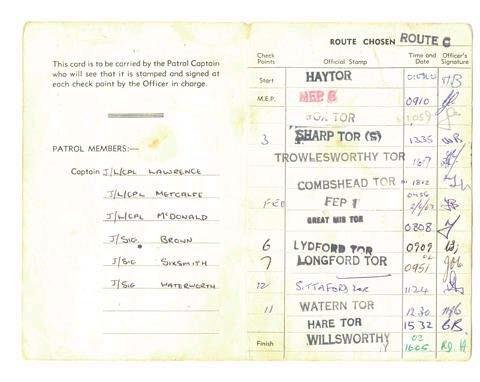 This card is to be carried by the Patrol Captain
who will see that it is stamped and signed at
each check point by the Officer in charge.
PATROL MEMBERS:—
Captain J/L/CPL LAWRENCE
J/L/CPL METCALFE
J/L/CPL McDONALD
J/SIG. BROWN
J/SIG SIXSMITH
J/SIG WATERWORTH
ROUTE CHOSEN ROUTE C
Check Points Official Stamp Time and Date Officer's Signature
Start HAYTOR
M.E.P. MEP B 0910
TOR 1059
3 SHARP TOR (S) 1335
TROWLESWORTHY TOR 1617
COMBSHEAD TOR 1812
FEP 1
GREAT MIS TOR 0808
6 LYDFORD TOR 0909
7 LONGFORD TOR 0951
12 SITTAFORD TOR 1124
11 WATERN TOR 1230
HARE TOR 1532 GB.
Finish WILLSWORTHY 1605